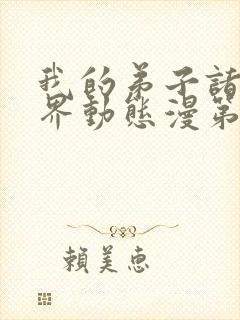 我的弟子諸
界動態漫第
賴美惠